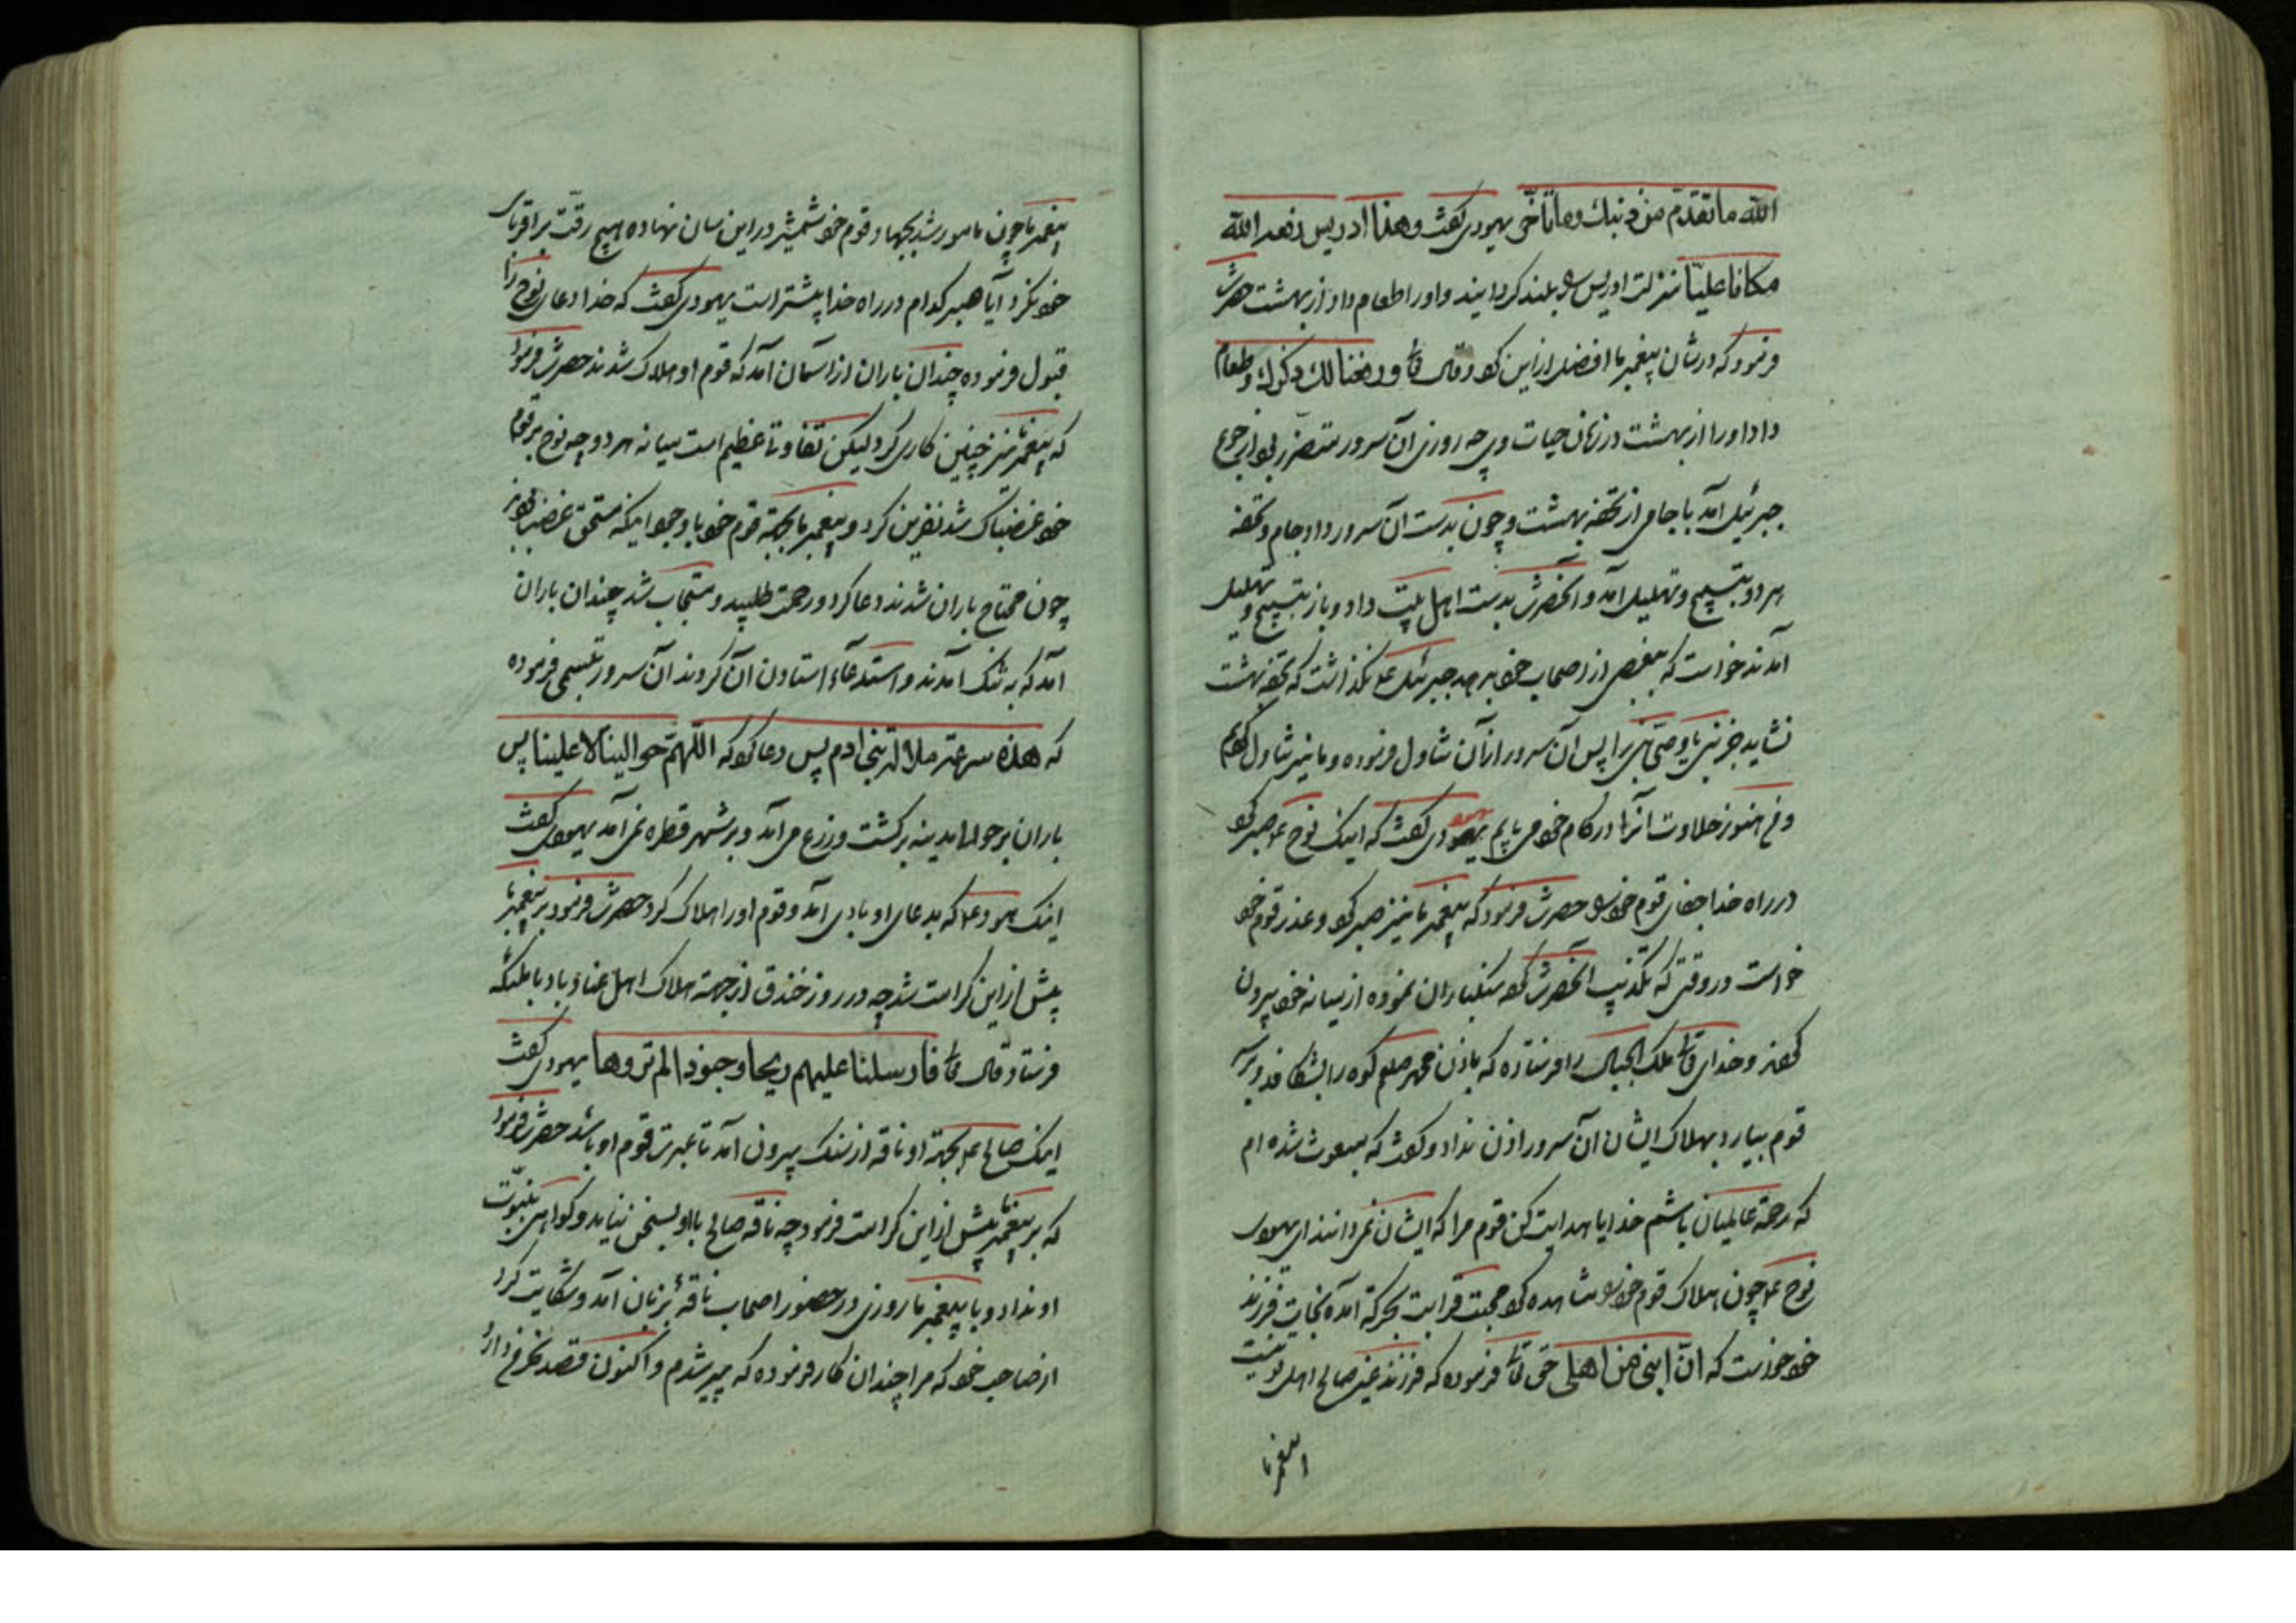 الله ما تقدّم من ذنبك وما تأخّر یهودی گفت و هذا ادریس رفعه الله
مکانا علیّا منزلت ادریس را بلند کردانیند و اورا طعام داد از بهشت حضرت
فرمود که درشان پیغمبر ما افضل از این کو و قال تع ورفعنا لك ذکرك و طعام
داد اورا از بهشت در زمان حیات وی چه روزی آن سرور متضرر بود از جوع
جبرئیل آمد با جامی از تحفه بهشت و چون بدست آن سرور داد جام و تحفه
هر دو بتسبیح و تهلیل آمد و آنحضرت بدست اهل بیت داد و باز بتسبیح و تهلیل
آمدند خواست که ببعضی از اصحاب خو بدهد جبرئیل ع نگذاشت که تحفه بهشت
نشاید جز نبی یا وصی نبی را پس آن سرور از آن تناول فرموده و ما نیز تناول کردیم
و من هنوز حلاوت آنرا در کام خو می یابم یهودی گفت که اینک نوح ع صبر کو
در راه خدا جفای قوم خو را حضرت فرمود که پیغمبر ما نیز صبر کو و عذر قوم خو
خواست در وقتی که تکذیب آنحضرت کو سنکباران نموده از میانه خو بیرون
کو و خدای تع ملک الجبال را فرستاده که باذن محمد صلعم کوه را بشکافد و بر
قوم بیارد بهلاک ایشان آن سرور اذن نداد و گفت که مبعوث شده ام
که رحمة عالمیان باشم خدایا هدایت کن قوم مرا که ایشان نمی دانند ای یهودی
نوح ع چون هلاک قوم خو را مشاهده کو محبت قرابت بحرکة آمده نجات فرزند
خو خواست که انّ ابنی من اهلی حق تع فرموده که فرزند غیر صالح اهل تو نیست
پیغمبر ما
پیغمبر ما چون مامور شد بجهاد قوم خو شمشیر در این سان نهاده هیچ رقت بر اقربای
خو نکرد آیا صبر کدام در راه خدا بیشتر است یهودی گفت که خدا دعای نوح را
قبول فرموده چندان باران از آسمان آمد که قوم او هلاک شدند حضرت فرمود
که پیغمبر ما نیز چنین کاری کرد لیکن تفاوتا عظیم است میانه هر دو چه نوح بر قوم
خو غضبناک شد نفرین کرد و پیغمبر ما بجهة قوم خو با وجود اینکه مستحق غضب بودند
چون محتاج باران شدند دعا کرد و رحمت طلبید و مستجاب شد چندان باران
آمد که به تنک آمدند و استدعاء استادن آن کردند آن سرور تبسمی فرموده
که هذه سرعة ملالة بنی ادم پس دعا کو که اللّهمّ حوالینا لا علینا پس
باران بر حوالی مدینه بر کشت و زرع می آمد و بر شهر قطره نمی آمد یهودی گفت
اینک هود ع که بدعای او بادی آمد و قوم اورا هلاک کرد حضرت فرمود بر پیغمبر ما
بیش از این کرامت شد چه در روز خندق از جهته هلاک اهل عناد باد با ملئکه
فرستاد قال تع فارسلنا علیهم ریحا وجنودا لم تروها یهودی گفت
اینک صالح ع بجهة او ناقه از سنک بیرون آمد تا عبرت قوم او باشد حضرت فرمود
که بر پیغمبر ما بیش از این کرامت فرمود چه ناقه صالح با او بسخن نیامد و کواهی بنبوّت
او نداد و با پیغمبر ما روزی در حضور اصحاب ناقه بزبان آمد و شکایت کرد
از صاحب خو که مرا چندان کار فرموده که پیر شدم و اکنون قصد نحر من دارد